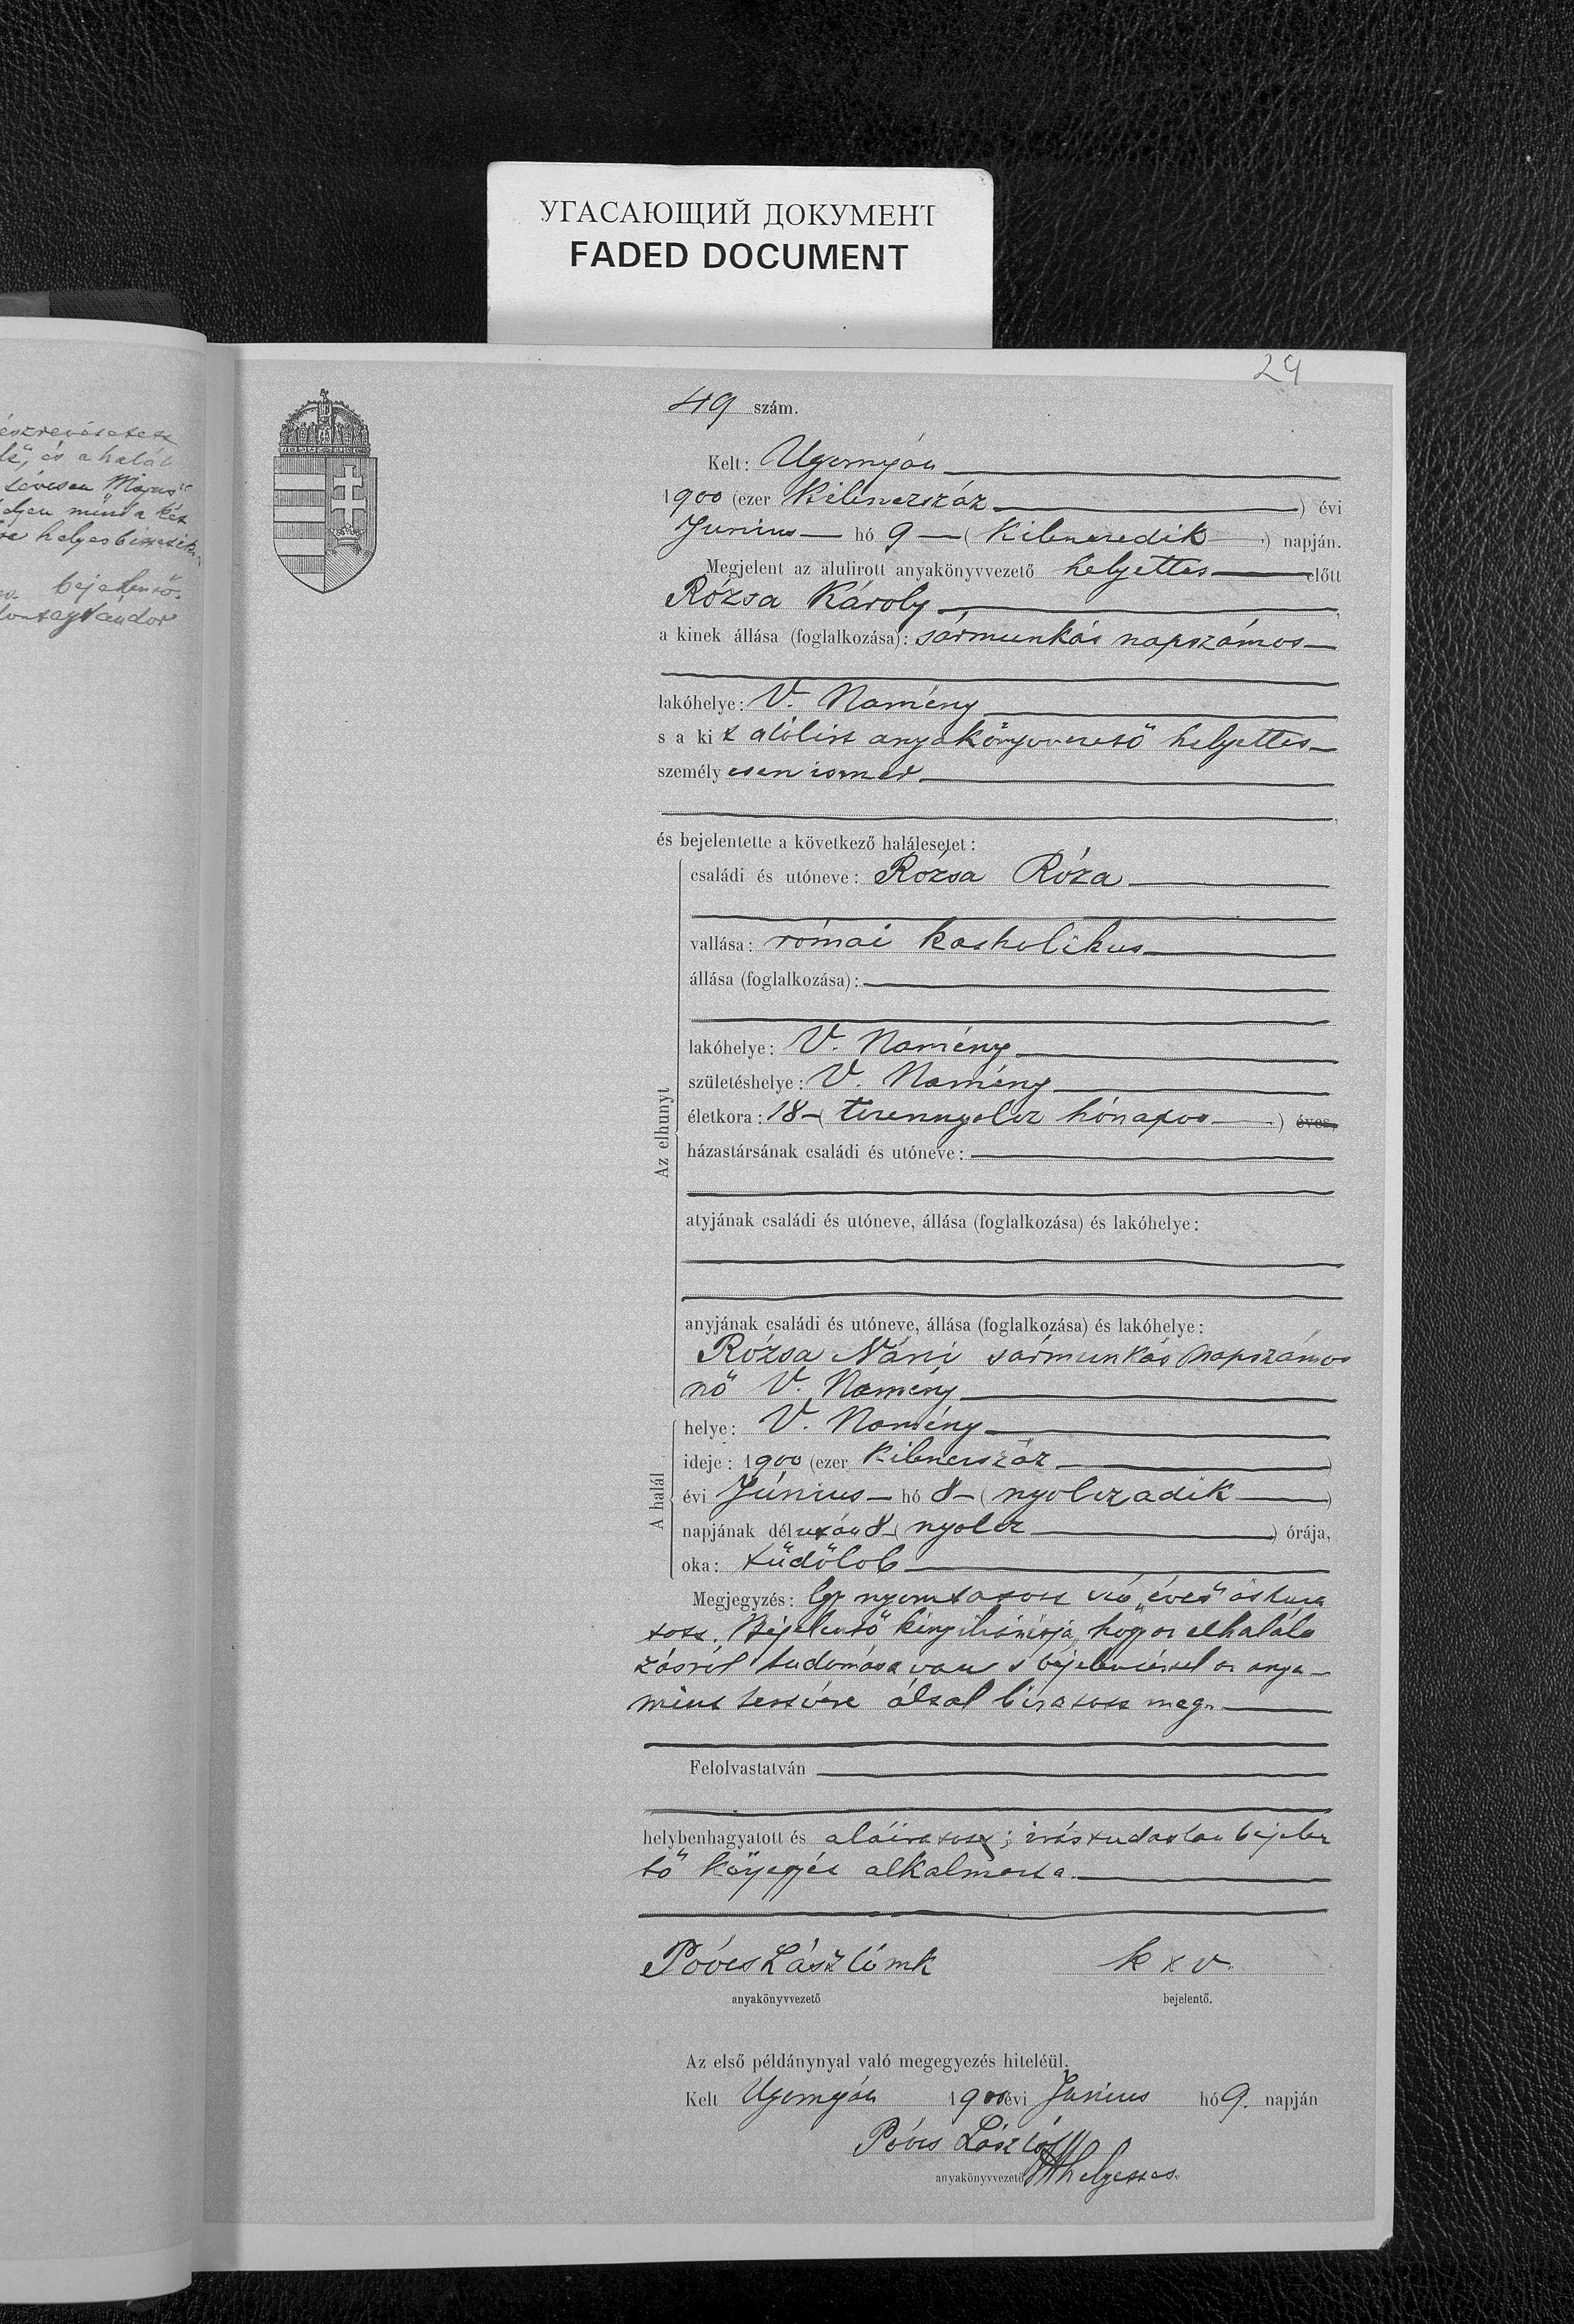 УГАСАЮЩИЙ ДОКУМЕНТ
FADED DOCUMENT
29
49 szám.
Kelt: Ugornyán
1900 (ezer kilenczszáz) évi
Junius hó 9 (kilenczedik) napján.
Megjelent az alulirott anyakönyvvezető helyettes előtt
Rózsa Károly,
a kinek állása (foglalkozása): sármunkás napszámos
lakóhelye: V. Namény
s a kit alólirt anyakönyvvezető helyettes
személyesen ismer
és bejelentette a következő halálesetet:
Az elhunyt
családi és utóneve: Rózsa Róza
vallása: római katholikus
állása (foglalkozása):
lakóhelye: V. Namény
születéshelye: V. Namény
életkora: 18 (tizennyolcz hónapos) éves,
házastársának családi és utóneve:
atyjának családi és utóneve, állása (foglalkozása) és lakóhelye:
anyjának családi és utóneve, állása (foglalkozása) és lakóhelye:
Rózsa Náni sármunkás napszámos
nő V. Namény
A halál
helye: V. Namény
ideje: 1900 (ezer kilenczszáz)
évi Június hó 8 (nyolczadik)
napjának délután 8 (nyolcz) órája,
oka: tüdőlob
Megjegyzés: Egy nyomtatott szó „éves"
tott. Bejelentő hogy az elhalálo
zásról tudomása van s bejelentéssel az anya
mint testvére által bizatott meg.
Felolvastatván
helybenhagyatott és aláiratott; irástudatlan bejelen
tő kézjegyét alkalmazta.
Póócs László mk
k x v.
anyakönyvvezető
bejelentő.
Az első példánynyal való megegyezés hiteléül.
Kelt Ugornyán 1900 évi Junius hó 9. napján
Póócs László
anyakönyvvezető helyettes.
észrevétetett
és a halál
tévesen Május"
mind a két
helyesbittetik
bejelentő.